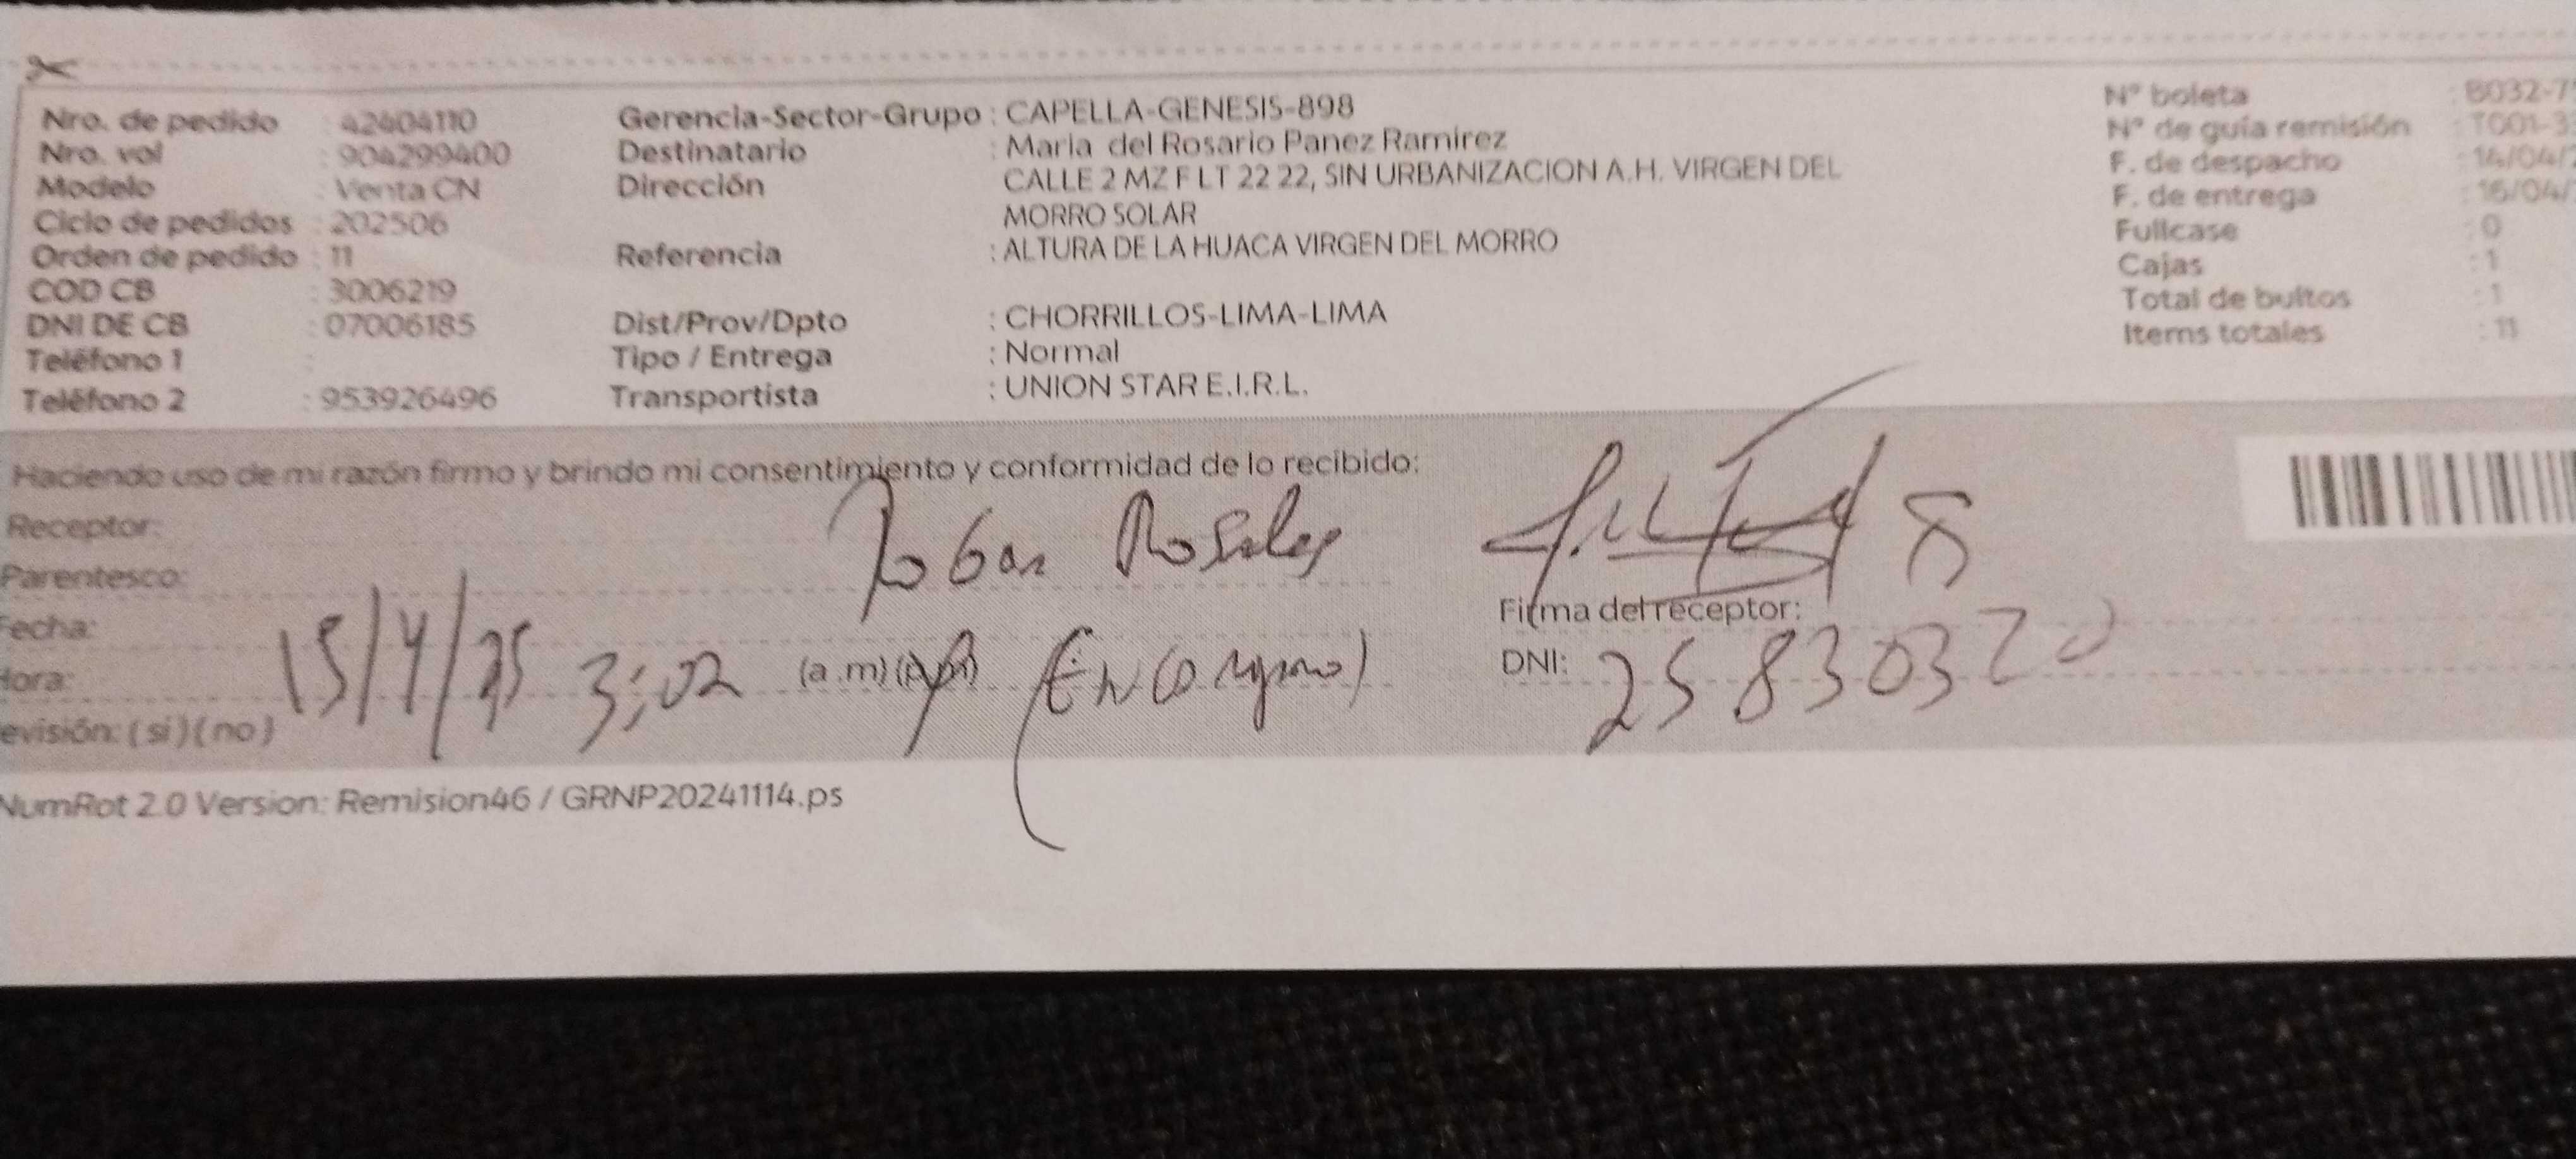 Nro. de pedido : 42404110
Nro. vol : 904299400
Modelo : Venta CN
Ciclo de pedidos : 202506
Orden de pedido : 11
COD CB : 3006219
DNI DE CB : 07006185
Teléfono 1 :
Teléfono 2 : 953926496
Gerencia-Sector-Grupo : CAPELLA-GENESIS-898
Destinatario : Maria del Rosario Panez Ramirez
Dirección CALLE 2 MZ F LT 22 22, SIN URBANIZACION A.H. VIRGEN DEL
MORRO SOLAR
Referencia : ALTURA DE LA HUACA VIRGEN DEL MORRO
Dist/Prov/Dpto : CHORRILLOS-LIMA-LIMA
Tipo / Entrega : Normal
Transportista : UNION STAR E.I.R.L.
N° boleta : B032-7
N° de guía remisión : T001-3
F. de despacho : 14/04/
F. de entrega : 16/04/
Fullcase : 0
Cajas : 1
Total de bultos : 1
Items totales : 11
Haciendo uso de mi razón firmo y brindo mi consentimiento y conformidad de lo recibido:
Receptor: Rosales
Parentesco:
Fecha: 15/4/25
Hora: 3:02 (a.m)(p.m)
evisión: (si)(no)
Firma del receptor:
DNI: 25830320
NumRot 2.0 Version: Remision46 / GRNP20241114.ps